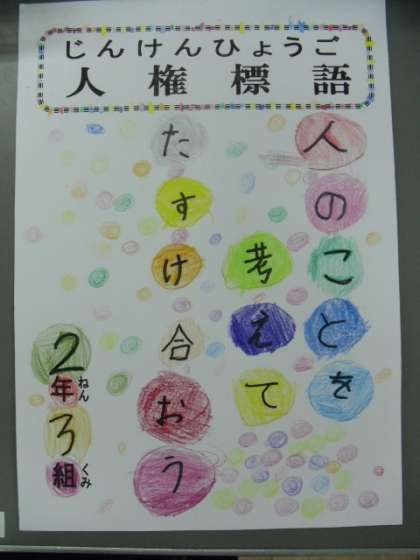 じんけんひょうご
人権標語
人のことを
考えて
たすけ合おう
2年ねん3組くみ